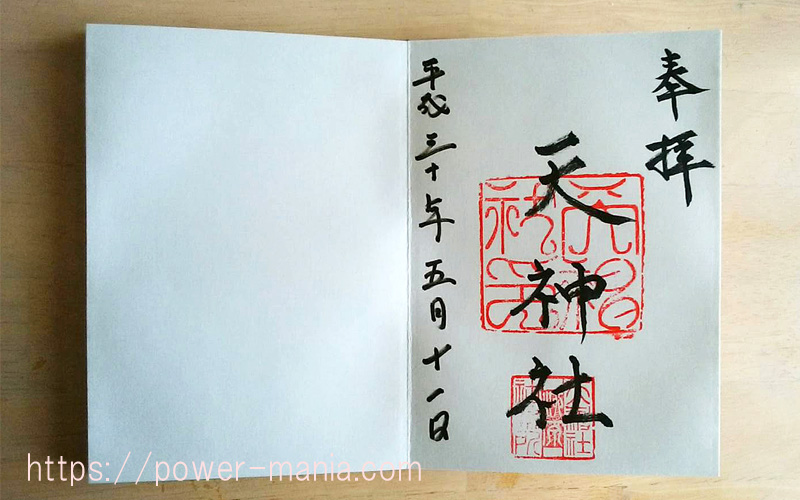 奉拝
天神社
平成三十年五月十一日
https://power-mania.com